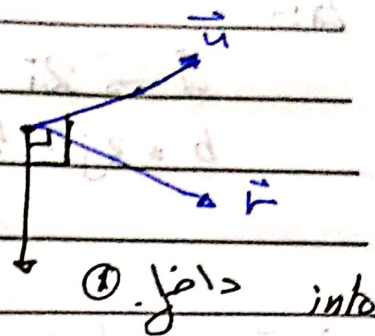 u
r
داخل. into